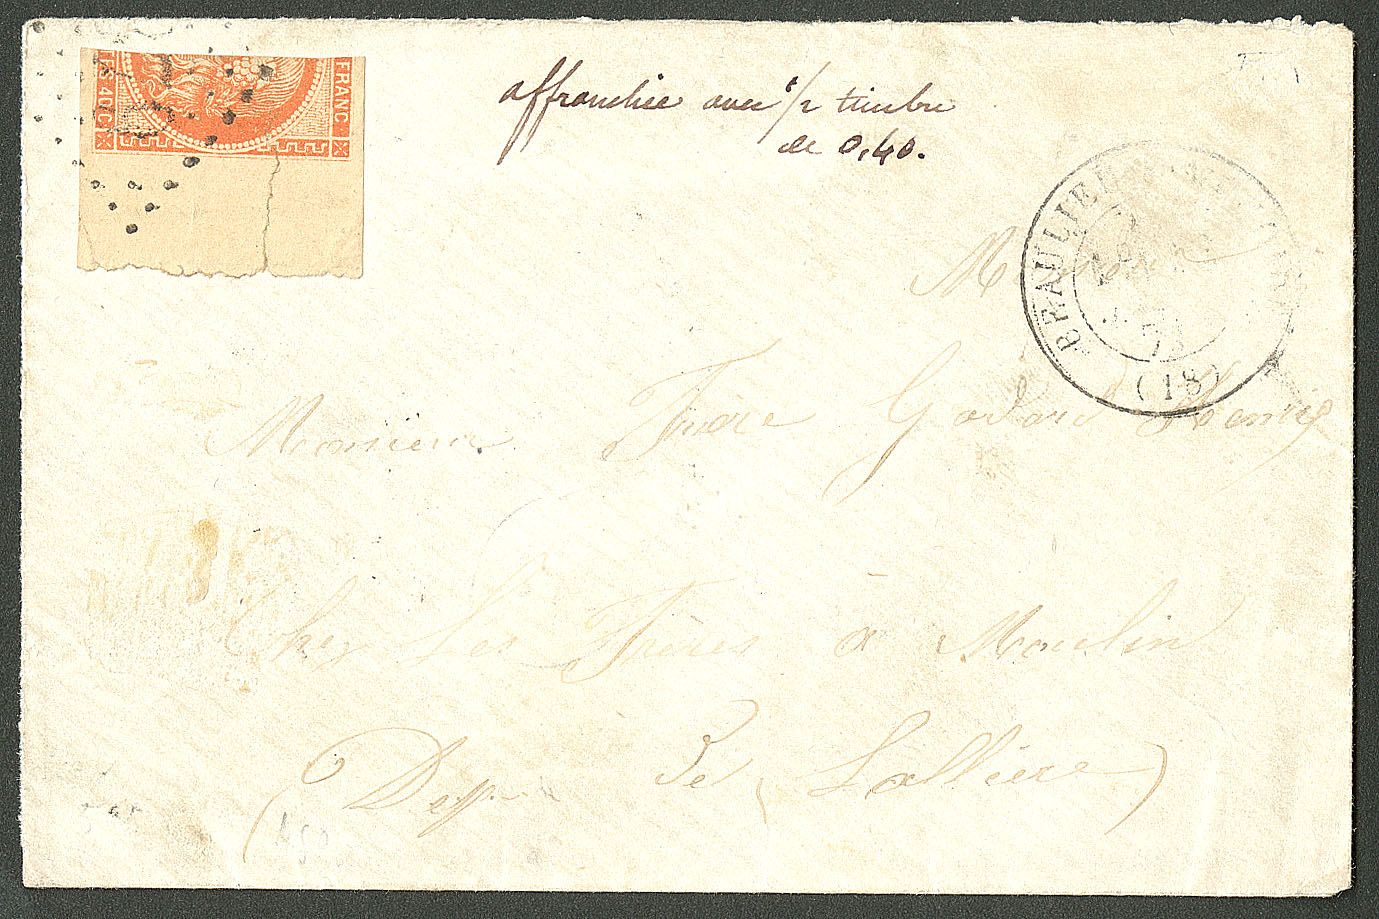 40C FRANC
40C
affranchie avec 1/2 timbre
de 0,40.
BEAULIEU
73
(18)
Monsieur Frère Godard Henry
Chez Les Frères a Moulin
(Dep De Lalliere)